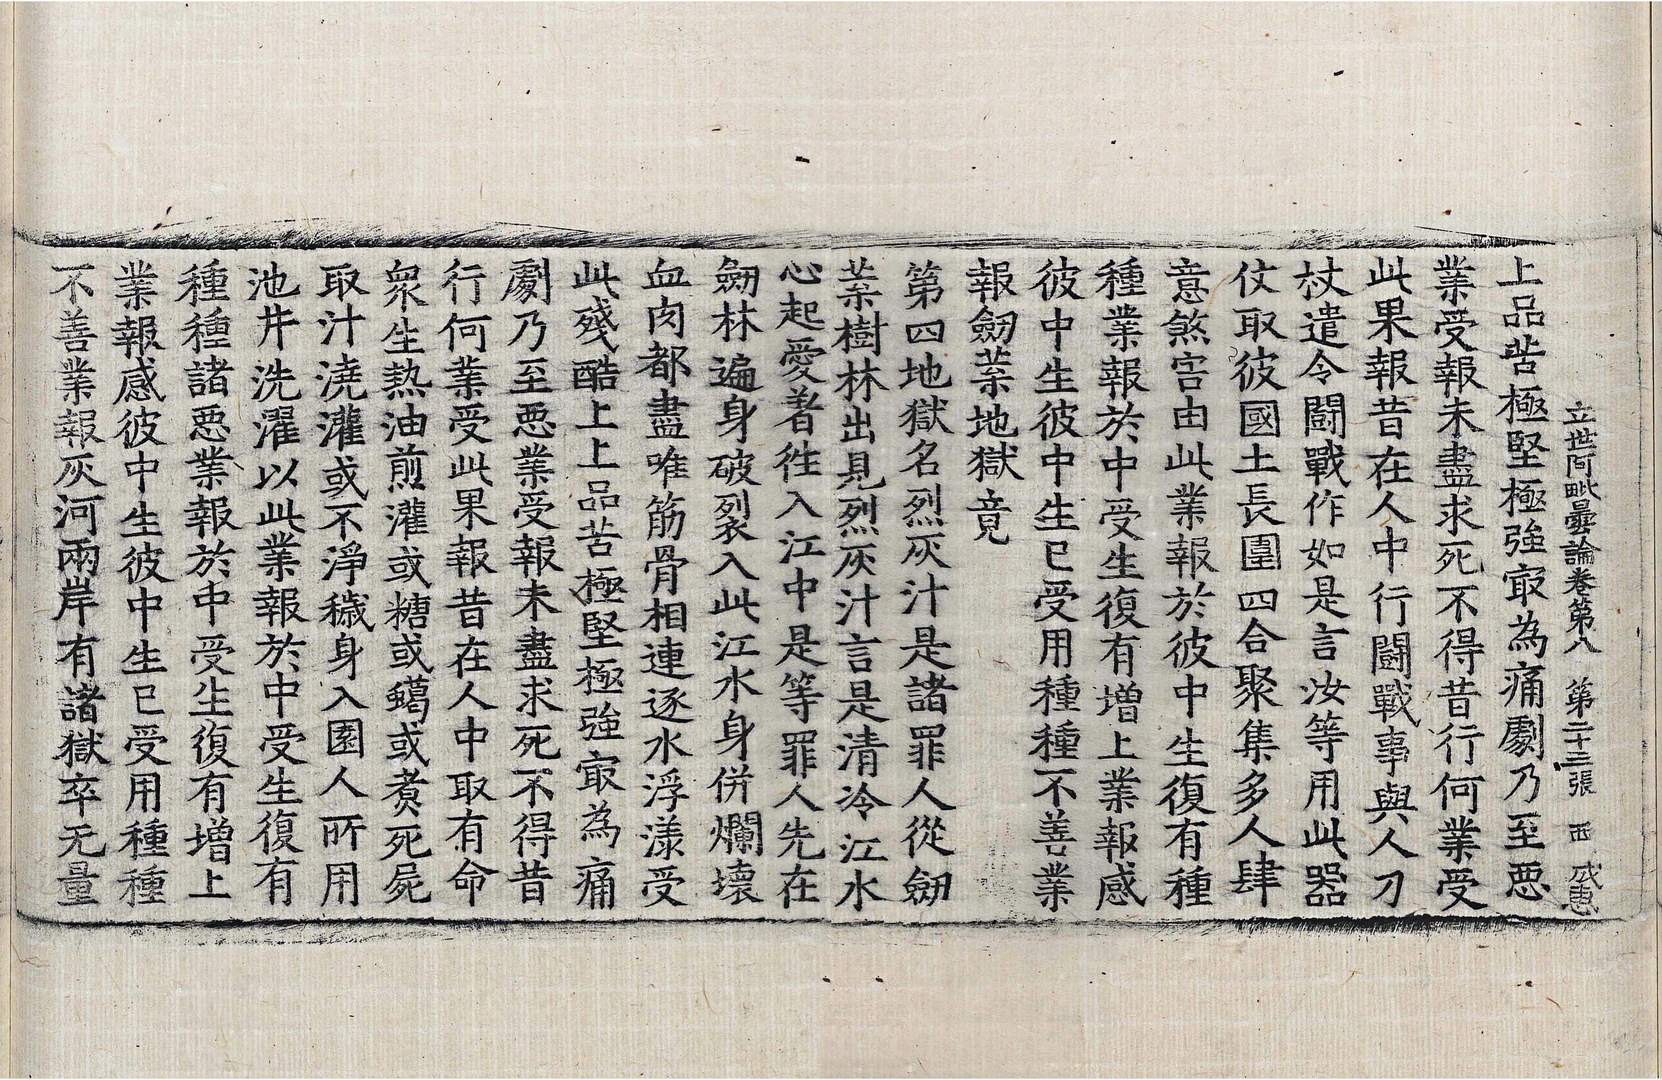 立世阿毗曇論卷第八 第二十三張 西 成惠
上品苦極堅極強㝡為痛劇乃至惡
業受報未盡求死不得昔行何業受
此果報昔在人中行鬪戰事與人刀
杖遣令鬪戰作如是言汝等用此器
仗取彼國土長圍四合聚集多人肆
意煞害由此業報於彼中生復有種
種業報於中受生復有增上業報感
彼中生彼中生已受用種種不善業
報劒葉地獄竟
第四地獄名烈灰汁是諸罪人從劒
葉樹林出見烈灰汁言是清冷江水
心起愛著徃入江中是等罪人先在
劒林遍身破裂入此江水身併爛壞
血肉都盡唯筋骨相連逐水浮漾受
此殘酷上上品苦極堅極強㝡為痛
劇乃至惡業受報未盡求死不得昔
行何業受此果報昔在人中取有命
衆生熱油煎灌或糖或蠟或煑死屍
取汁澆灌或不淨穢身入園人所用
池井洗濯以此業報於中受生復有
種種諸惡業報於中受生復有增上
業報感彼中生彼中生已受用種種
不善業報灰河兩岸有諸獄卒无量